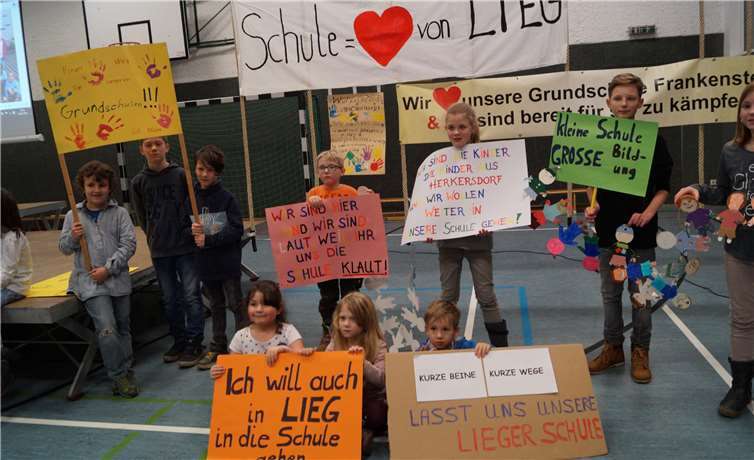 Schule = von LIEG
Wir unsere Grundschule Frankenst
& sind bereit für zu kämpfe
Grundschulen!!!
kleine Schule
GROSSE Bild-
ung
SIND DIE KINDER
DIE KINDER AUS
HERKERSDORF
WIR WOLLEN
WEITER IN
UNSERE SCHULE GEHEN!
WIR SIND HIER
UND WIR SIND
LAUT WEIL IHR
UNS DIE
SCHULE KLAUT!
Ich will auch
in LIEG
in die Schule
gehen
KURZE BEINE KURZE WEGE
LASST UNS UNSERE
LIEGER SCHULE